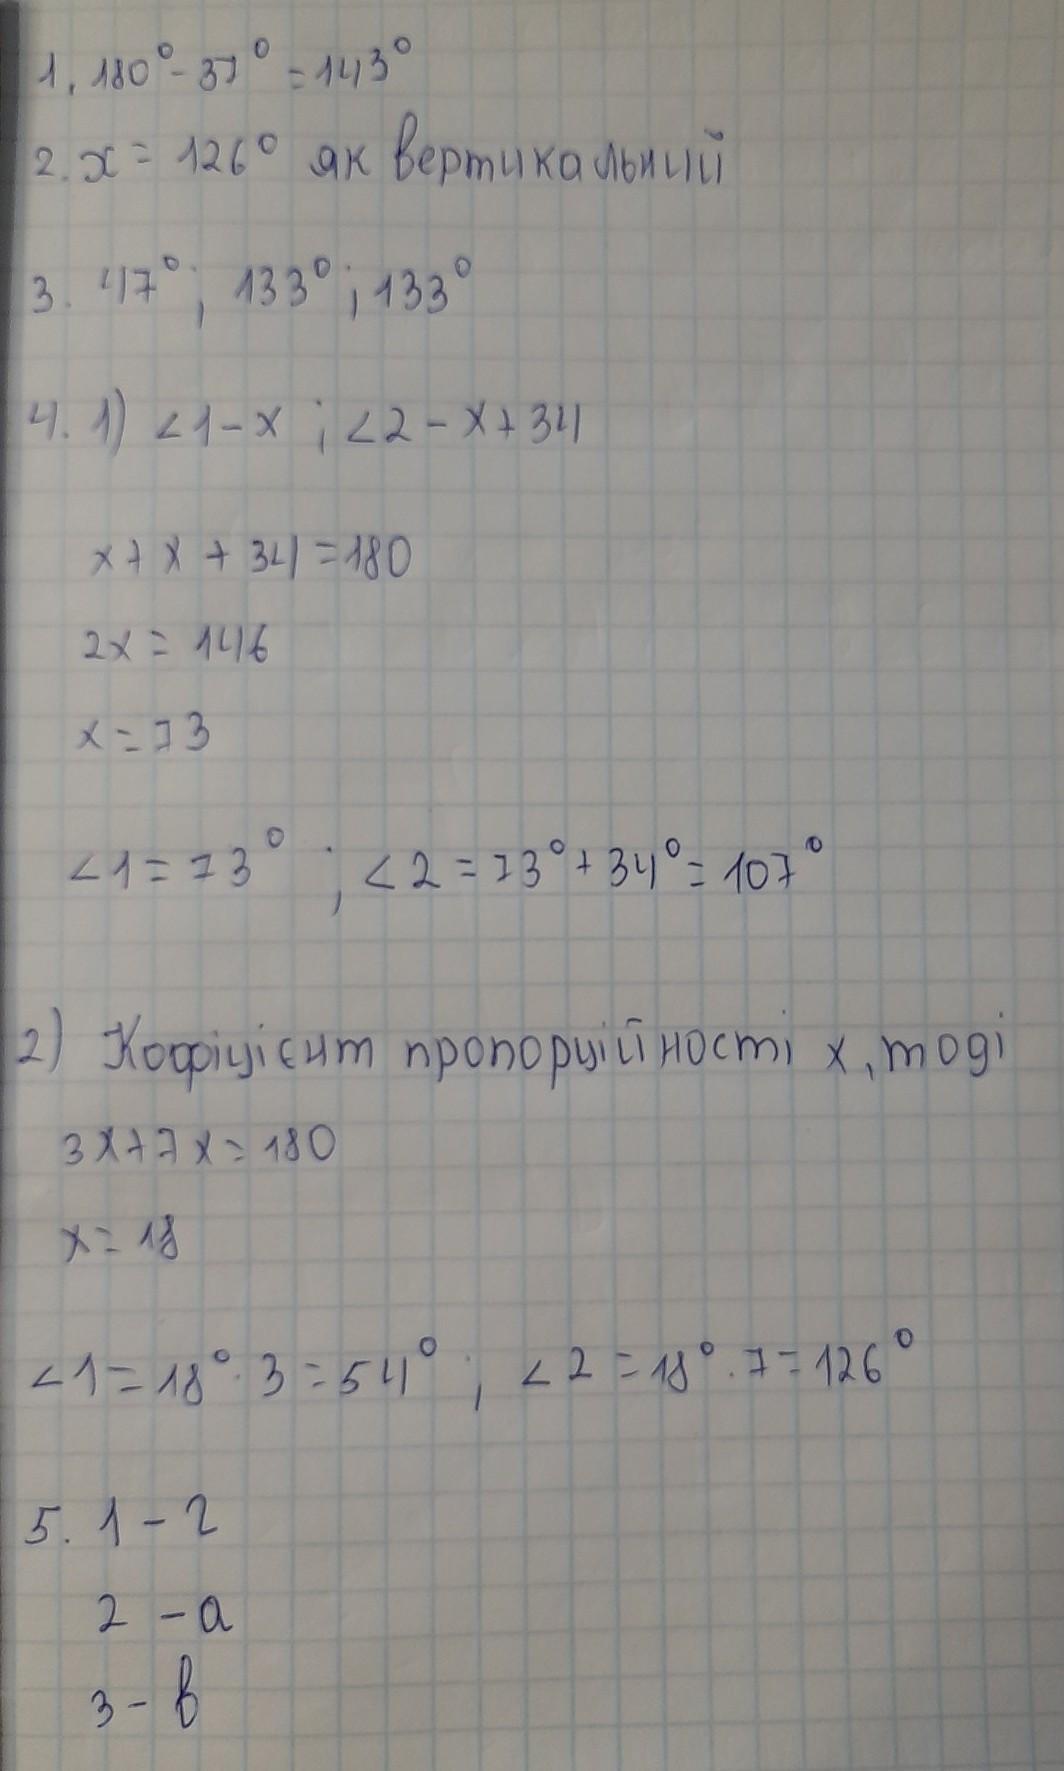 1. 180° - 37° = 143°
2. x = 126° як вертикальний
3. 47°; 133°; 133°
4. 1) <1 - x ; <2 - x + 34
x + x + 34 = 180
2x = 146
x = 73
<1 = 73° ; <2 = 73° + 34° = 107°
2) Кофіцієнт пропорційності x, тоді
3x + 7x = 180
x = 18
<1 = 18° · 3 = 54° ; <2 = 18° · 7 = 126°
5. 1 - г
2 - а
3 - в